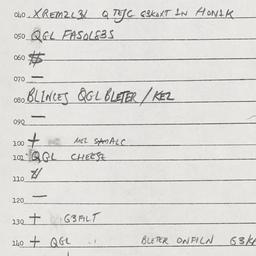 040 XREMZL3L Q TEJC G3KOXT IN HON1K
050 QGL FASOLE3S
060 #
070 —
080 BLINCES QGL BLETER / KEZ
090 —
100 + MEZ SAMALC
101 QGL CHEESE
110 //
120 —
130 + G3FILT
140 + QGL BLETER ONFILN G3K